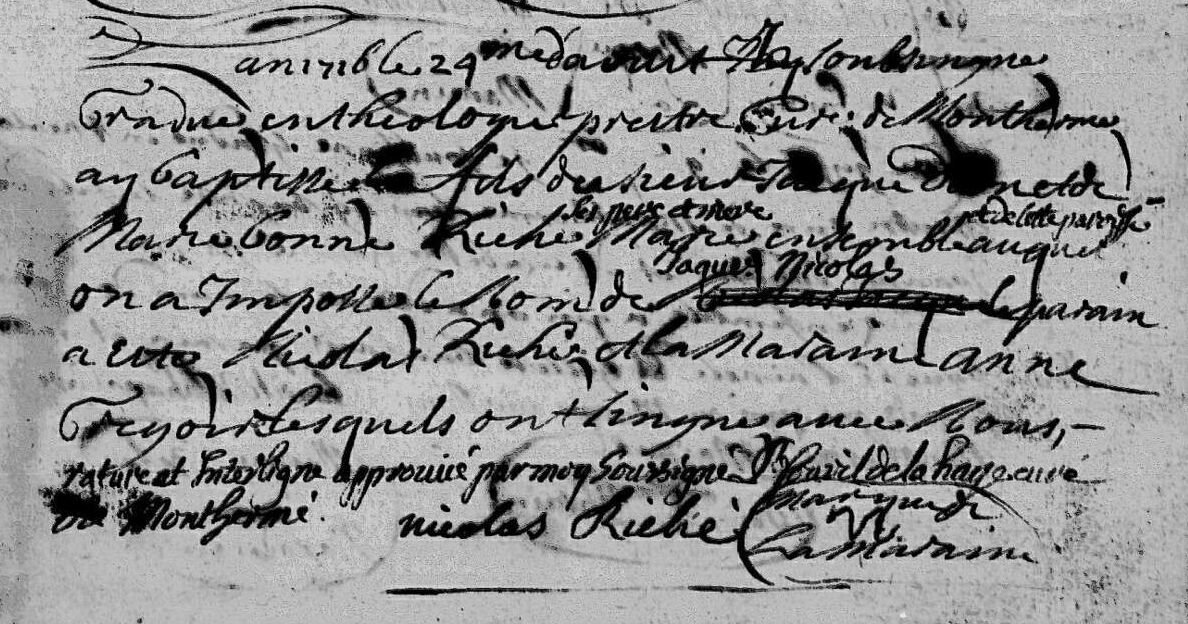 an 1716 le 24me daoust Je soubsingne
Gradué en theologie prestre Curé de Monthermé
ay baptisse le fils du sieur Jacque et de
Marie bonne Riché ses pere et mere Marie ensemble auquel et de cette paroisse
on a Impossé le Nom de Jaques Nicolas le parain
a este Nicolas Riché et la Maraine anne
lesquels ont singne avec Nous,
rature et Interligne approuvé par moy Soussigné de la haye curé
de Monthermé. nicolas Riché marque de
La Maraine